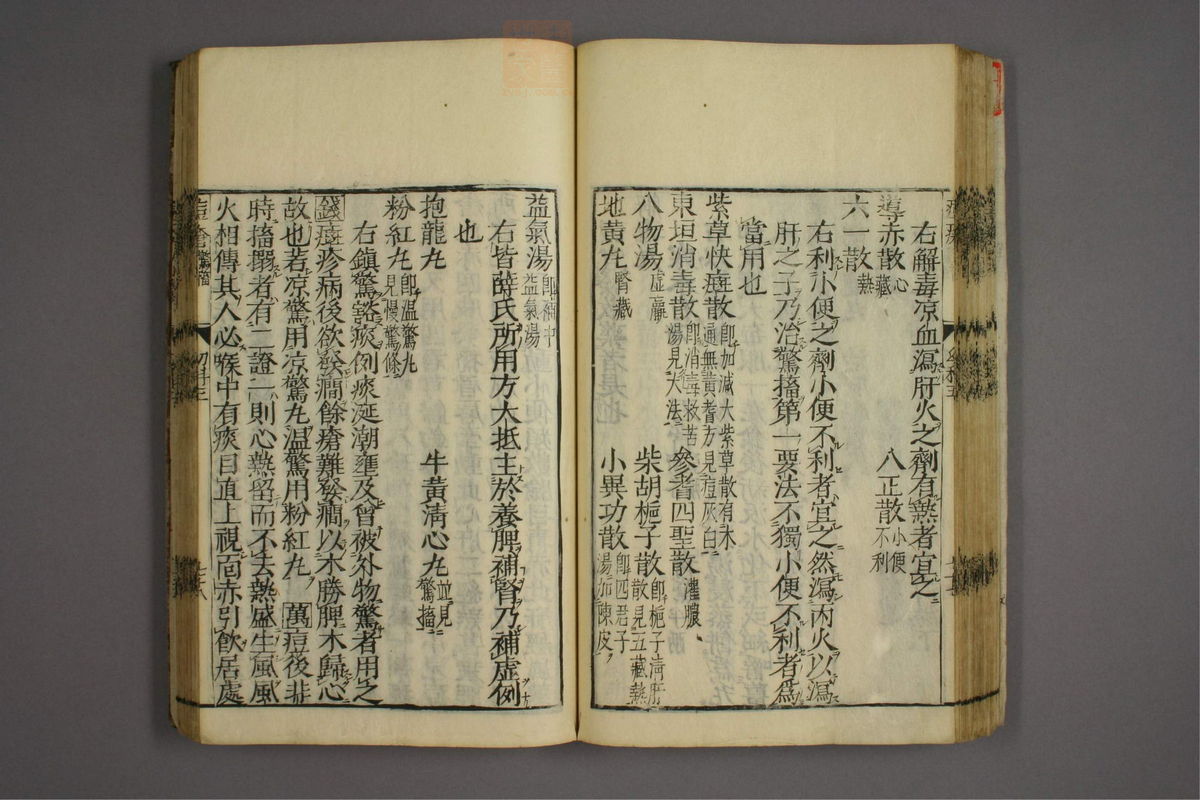 右解毒凉血瀉肝火之劑有熱者宜之
導赤散心藏　八正散小便不利
六一散熱
右利小便之劑小便不利者宜之然瀉丙火以瀉
肝之子乃治驚搐第一要法不獨小便不利者爲
當用也
紫草快癍散即加減大紫草散有木通無黄耆方見痘灰白
東垣消毒散即消毒救苦湯見大法　參耆四聖散灌膿
八物湯虛羸　柴胡梔子散即梔子清肝散見五藏熱
地黄丸腎藏　小異功散即四君子湯加陳皮
益氣湯即補中益氣湯
右皆薛氏所用方大抵主於養脾補腎乃補虛例
也
抱龍丸　牛黄清心丸並見驚搐
粉紅丸即温驚丸見慢驚條
右鎮驚豁痰例痰涎潮壅及曾被外物驚者用之
錢癍疹病後欲發癎餘瘡難發癎以木勝脾木歸心
故也若凉驚用凉驚丸温驚用粉紅丸萬痘後非
時搐搦者有二證一則心熱留而不去熱盛生風風
火相傳其人必喉中有痰目直上視面赤引飲居處